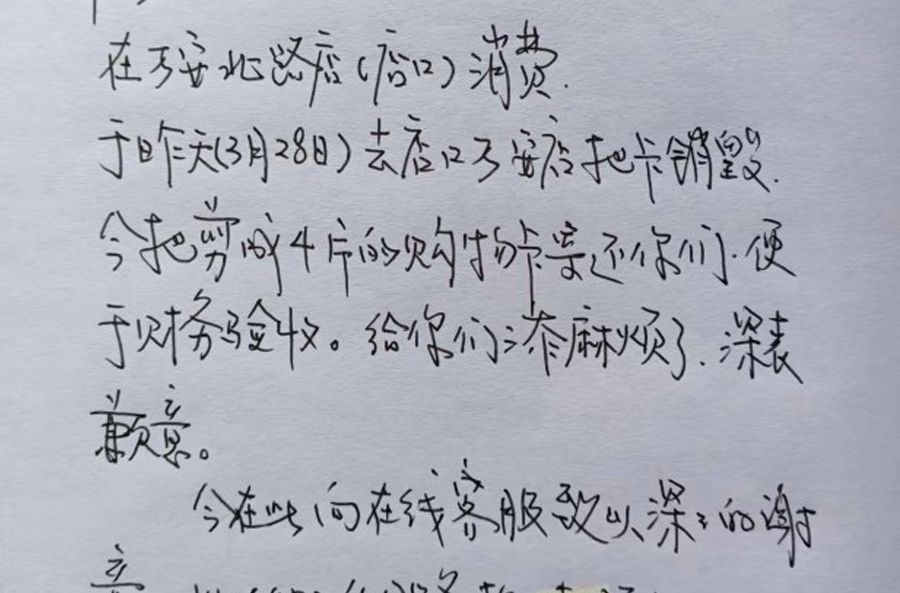 在万安北路店(店口)消费.
于昨天(3月28日)去店口万安店把卡销毁.
今把剪成4片的购物卡寄还你们.便
于财务验收。给你们添麻烦了.深表
歉意。
今在此向在线客服致以深深的谢
意